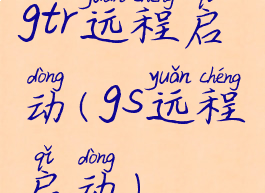 gtr远程启
dòng
动(gs远程
yuǎn chéng
qǐ dòng
启动)